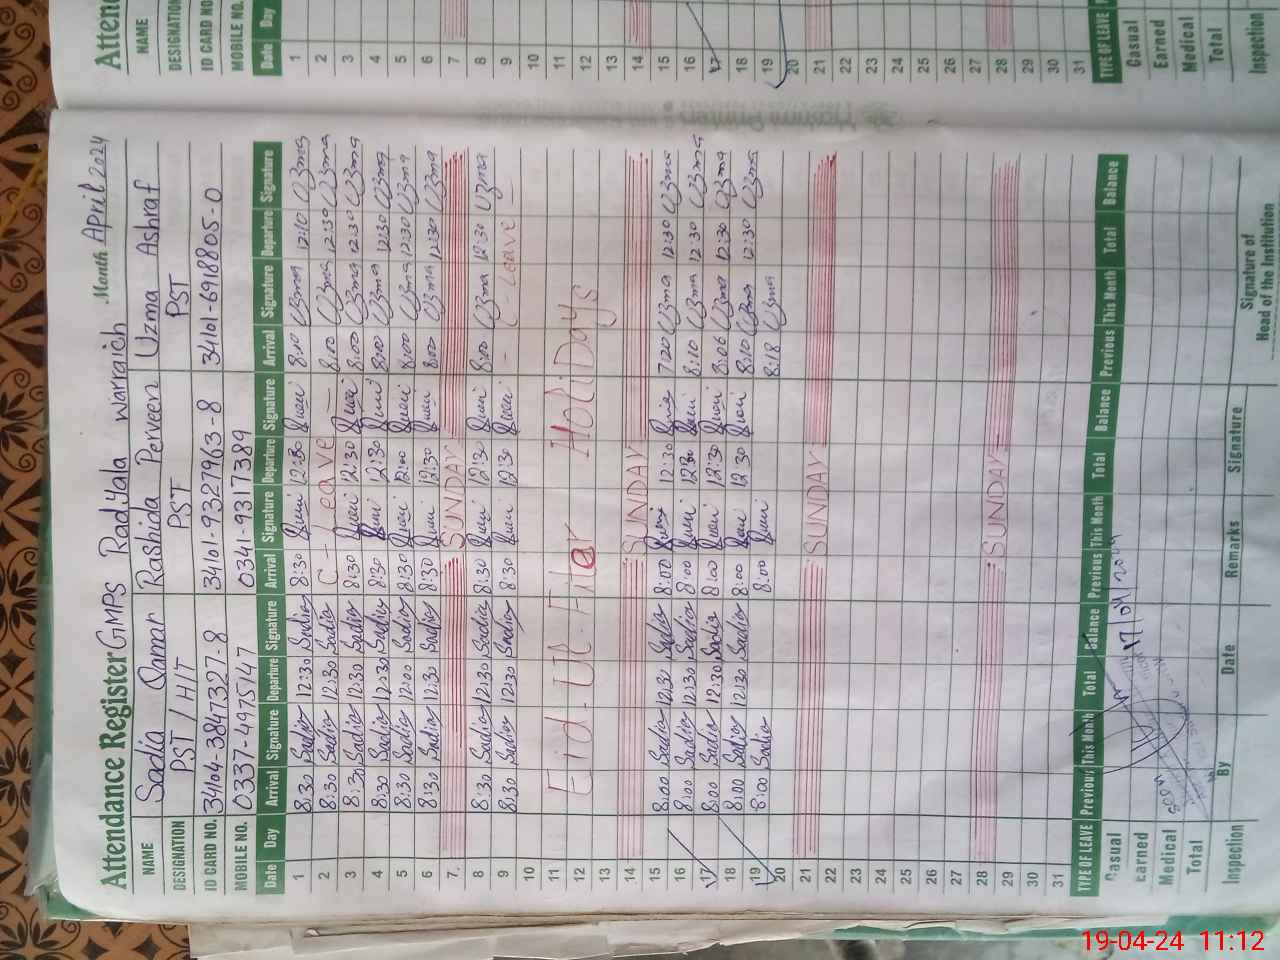 Attendance Register GMPS Radiyala Warraich Month April 2024
NAME Sadia Qamar Rashida Perveen Uzma Ashraf
DESIGNATION PST / H/T PST PST
ID CARD NO. 34104-3847327-8 34101-9327963-8 34101-6918805-0
MOBILE NO. 0337-4975147 0341-9317389
Date Day Arrival Signature Departure Signature Arrival Signature Departure Signature Arrival Signature Departure Signature
1 8:30 Sadia 12:30 Sadia 8:30 12:30 8:00 Uzma 12:10 Uzma
2 8:30 Sadia 12:30 Sadia C - Leave 8:00 Uzma 12:30 Uzma
3 8:30 Sadia 12:30 Sadia 8:30 12:30 8:00 Uzma 12:30 Uzma
4 8:30 Sadia 12:30 Sadia 8:30 12:30 8:00 Uzma 12:30 Uzma
5 8:30 Sadia 12:00 Sadia 8:30 12:00 8:00 Uzma 12:30 Uzma
6 8:30 Sadia 12:30 Sadia 8:30 12:30 8:00 Uzma 12:30 Uzma
7 SUNDAY
8 8:30 Sadia 12:30 Sadia 8:30 12:30 8:00 Uzma 12:30 Uzma
9 8:30 Sadia 12:30 Sadia 8:30 12:30 - C - Leave -
10
11 Eid-Ul-Fitar Holidays
12
13
14 SUNDAY
15 8:00 Sadia 12:30 Sadia 8:00 12:30 7:20 Uzma 12:30 Uzma
16 8:00 Sadia 12:30 Sadia 8:00 12:30 8:10 Uzma 12:30 Uzma
17 8:00 Sadia 12:30 Sadia 8:00 12:30 8:06 Uzma 12:30 Uzma
18 8:00 Sadia 12:30 Sadia 8:00 12:30 8:10 Uzma 12:30 Uzma
19 8:00 Sadia 8:00 8:18 Uzma
20
21 SUNDAY
22
23
24
25
26
27
28 SUNDAY
29
30
31
TYPE OF LEAVE Previous This Month Total Balance Previous This Month Total Balance Previous This Month Total Balance
Casual
Earned
Medical
Total
17/04/2024
Inspection By Date Remarks Signature Signature of
Head of the Institution
Attend
NAME
DESIGNATION
ID CARD NO.
MOBILE NO.
Date Day
1
2
3
4
5
6
7
8
9
10
11
12
13
14
15
16
17
18
19
20
21
22
23
24
25
26
27
28
29
30
31
TYPE OF LEAVE
Casual
Earned
Medical
Total
Inspection
19-04-24 11:12